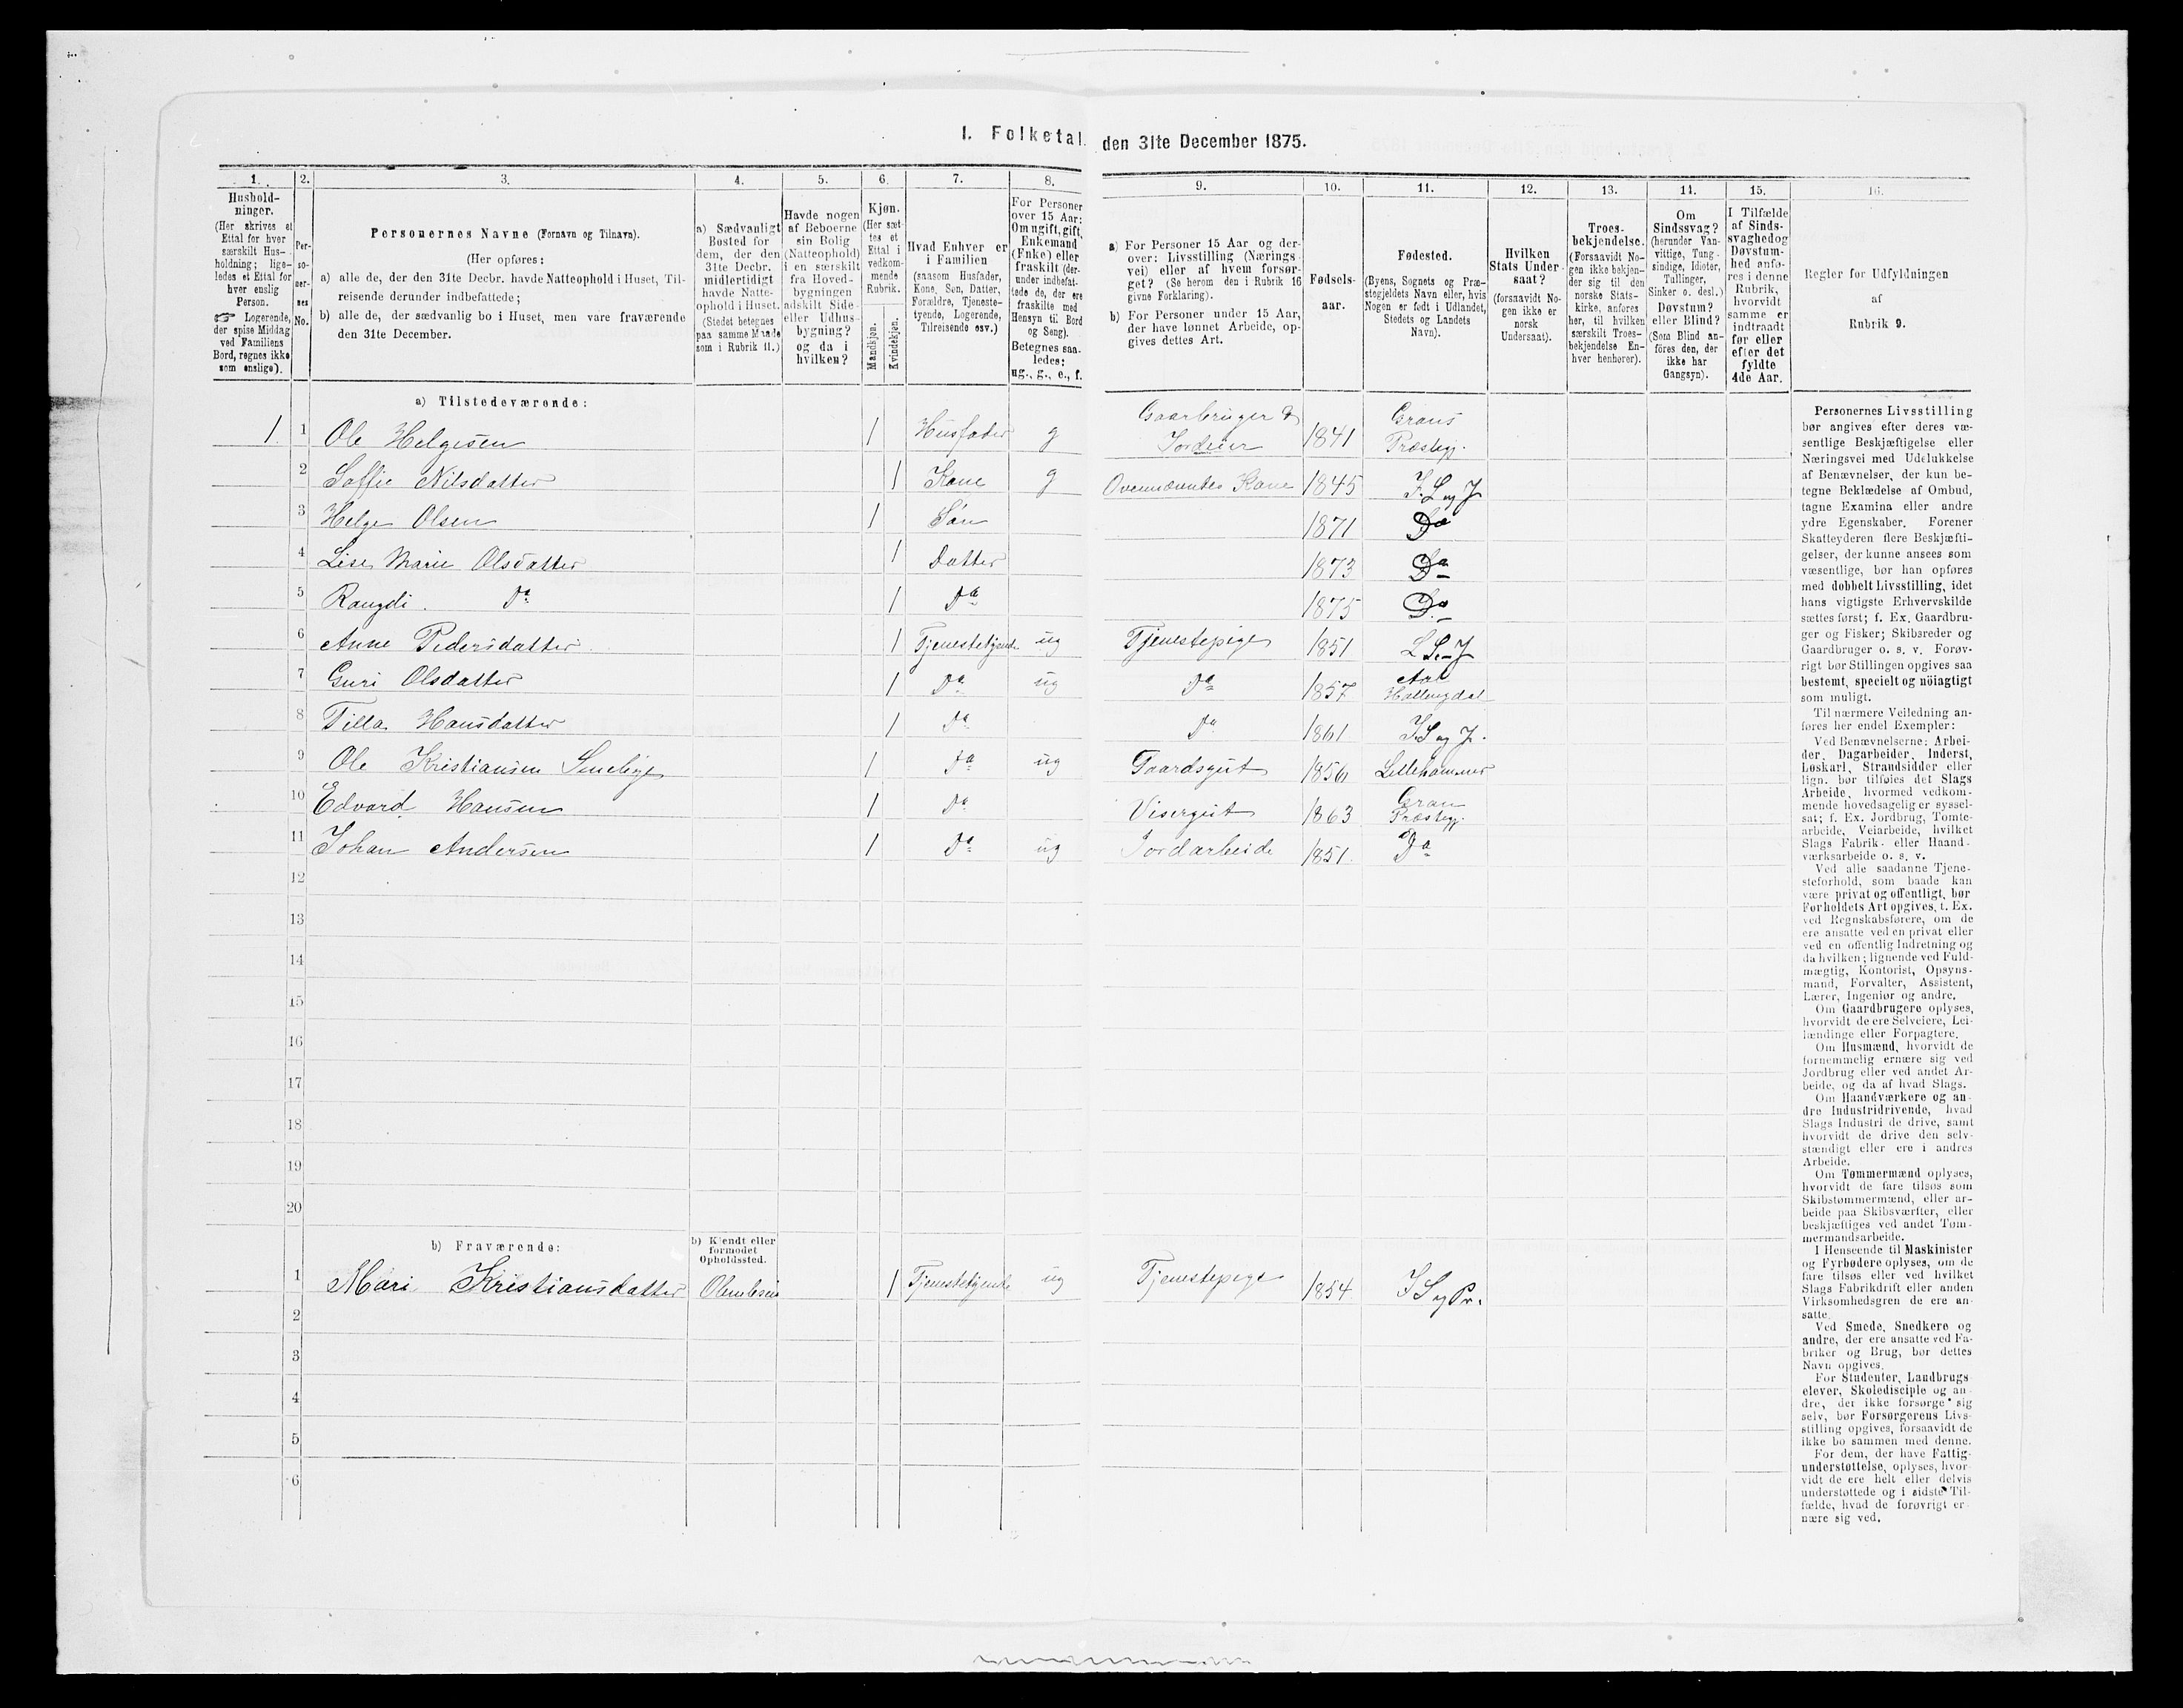 I. Folketal den 31te December 1875.
1. 2. 3. 4. 5. 6. 7. 8. 9. 10. 11. 12. 13. 14. 15. 16.
Hushold-
ninger.
(Her skrives et
Ettal for hver
særskilt Hus-
holdning; lige-
ledes et Ettal for
hver enslig
Person.
☞ Logerende,
der spise Middag
ved Familiens
Bord, regnes ikke
som enslige).
Per-
so-
ner-
nes
No.
Personernes Navne (Fornavn og Tilnavn).
(Her opføres:
a) alle de, der den 31te Decbr. havde Natteophold i Huset, Til-
reisende derunder indbefattede;
b) alle de, der sædvanlig bo i Huset, men vare fraværende
den 31te December.
a) Sædvanligt
Bosted for
dem, der den
31te Decbr.
midlertidigt
havde Natte-
ophold i Huset.
(Stedet betegnes
paa samme Maade
som i Rubrik 11.)
Havde nogen
af Beboerne
sin Bolig
(Natteophold)
i en særskilt
fra Hoved-
bygningen
adskilt Side-
eller Udhus-
bygning?
og da i
hvilken?
Kjøn.
(Her sæt-
tes et
Ettal i
vedkom-
mende
Rubrik.
Mandkjøn.
Kvindekjøn.
Hvad Enhver er
i Familien
(saasom Husfader,
Kone, Søn, Datter,
Forældre, Tjeneste-
tyende, Logerende,
Tilreisende osv.)
For Personer
over 15 Aar:
Om ugift, gift,
Enkemand
(Enke) eller
fraskilt (der-
under indbefat-
tede de, der ere
fraskilte med
Hensyn til Bord
og Seng).
Betegnes saa-
ledes:
ug., g., e., f.
a) For Personer 15 Aar og der-
over: Livsstilling (Nærings-
vei) eller af hvem forsør-
get? (Se herom den i Rubrik 16
givne Forklaring).
b) For Personer under 15 Aar,
der have lønnet Arbeide, op-
gives dettes Art.
Fødsels-
aar.
Fødested.
(Byens, Sognets og Præ-
stegjeldets Navn eller, hvis
Nogen er født i Udlandet,
Stedets og Landets
Navn).
Hvilken
Stats Under-
saat?
(forsaavidt No-
gen ikke er
norsk
Undersaat).
Troes-
bekjendelse.
(Forsaavidt No-
gen ikke bekjen-
der sig til den
norske Stats-
kirke, anføres
her, til hvilken
særskilt Troes-
bekjendelse En-
hver henhører).
Om
Sindssvag?
(herunder Van-
vittige, Tung-
sindige, Idioter,
Tullinger,
Sinker o. desl.)
Døvstum?
eller Blind?
(Som Blind an-
føres den, der
ikke har
Gangsyn).
I Tilfælde
af Sinds-
svaghed og
Døvstum-
hed anfø-
res i denne
Rubrik,
hvorvidt
samme er
indtraadt
før eller
efter det
fyldte
4de Aar.
Regler for Udfyldningen
af
Rubrik 9.
a) Tilstedeværende:
1 1 Ole Helgesen 1 Husfader g Gaarbruger & Jordeier 1841 Grans Præstegj.
2 Saffie Nilsdatter 1 Kone g Ovennævntes Kone 1845
3 Helge Olsen 1 Søn 1871 Do
4 Lise Marie Olsdatter 1 Datter 1873 Do
5 Rangdi Do 1 Do 1875 Do
6 Anne Pedersdatter 1 Tjenestetyende ug Tjenestepige 1851
7 Guri Olsdatter 1 Do ug Do 1857 Aal Hallingdal
8 Tilla Hansdatter 1 Do Do 1861
9 Ole Kristiansen 1 Do ug Gaardsgut 1856 Lillehammer
10 Edvard Hansen 1 Do Visergut 1863 Gran Præstegj.
11 Johan Andersen 1 Do ug Jordarbeide 1851 Do
12
13
14
15
16
17
18
19
20
b) Fraværende:
b) Kjendt eller
formodet
Opholdssted.
1 Mari Kristiansdatter 1 Tjenestetyende ug Tjenestepige 1854
2
3
4
5
6
Personernes Livsstilling
bør angives efter deres væ-
sentlige Beskjæftigelse eller
Næringsvei med Udelukkelse
af Benævnelser, der kun be-
tegne Beklædelse af Ombud,
tagne Examina eller andre
ydre Egenskaber. Forener
Skatteyderen flere Beskjæfti-
gelser, der kunne ansees som
væsentlige, bør han opføres
med dobbelt Livsstilling, idet
hans vigtigste Erhvervskilde
sættes først; f. Ex. Gaardbru-
ger og Fisker; Skibsreder og
Gaardbruger o. s. v. Forøv-
rigt bør Stillingen opgives saa
bestemt, specielt og nöiagtigt
som muligt.
Til nærmere Veiledning an-
føres her endel Exempler:
Ved Benævnelserne: Arbei-
der, Dagarbeider, Inderst,
Løskarl, Strandsidder eller
lign. bør tilføies det Slags
Arbeide, hvormed vedkom-
mende hovedsagelig er syssel-
sat; f. Ex. Jordbrug, Tomte-
arbeide, Veiarbeide, hvilket
Slags Fabrik- eller Haand-
værksarbeide o. s. v.
Ved alle saadanne Tjene-
steforhold, som baade kan
være privat og offentligt, bør
Forholdets Art opgives, t. Ex.
ved Regnskabsførere, om de
ere ansatte ved en privat eller
ved en offentlig Indretning og
da hvilken; lignende ved Fuld-
mægtig, Kontorist, Opsyns-
mand, Forvalter, Assistent,
Lærer, Ingeniør og andre.
Om Gaardbrugere oplyses,
hvorvidt de ere Selveiere, Lei-
lændinge eller Forpagtere.
Om Husmænd, hvorvidt de
fornemmelig ernære sig ved
Jordbrug eller ved andet Ar-
beide, og da af hvad Slags.
Om Haandværkere og an-
dre Industridrivende, hvad
Slags Industri de drive, samt
hvorvidt de drive den selv-
stændigt eller ere i andres
Arbeide.
Om Tømmermænd oplyses,
hvorvidt de fare tilsøs som
Skibstømmermænd, eller ar-
beide paa Skibsværfter, eller
beskjæftiges ved andet Tøm-
mermandsarbeide.
I Henseende til Maskinister
og Fyrbødere oplyses, om de
fare tilsøs eller ved hvilket
Slags Fabrikdrift eller anden
Virksomhedsgren de ere an-
satte.
Ved Smede, Snedkere og
andre, der ere ansatte ved Fa-
briker og Brug, bør dettes
Navn opgives.
For Studenter, Landbrugs-
elever, Skoledisciple og an-
dre, der ikke forsørge sig
selv, bør Forsørgerens Livs-
stilling opgives, forsaavidt de
ikke bo sammen med denne.
For dem, der have Fattig-
understøttelse, oplyses, hvor-
vidt de ere helt eller delvis
understøttede og i sidste Til-
fælde, hvad de forøvrigt er-
nære sig ved.